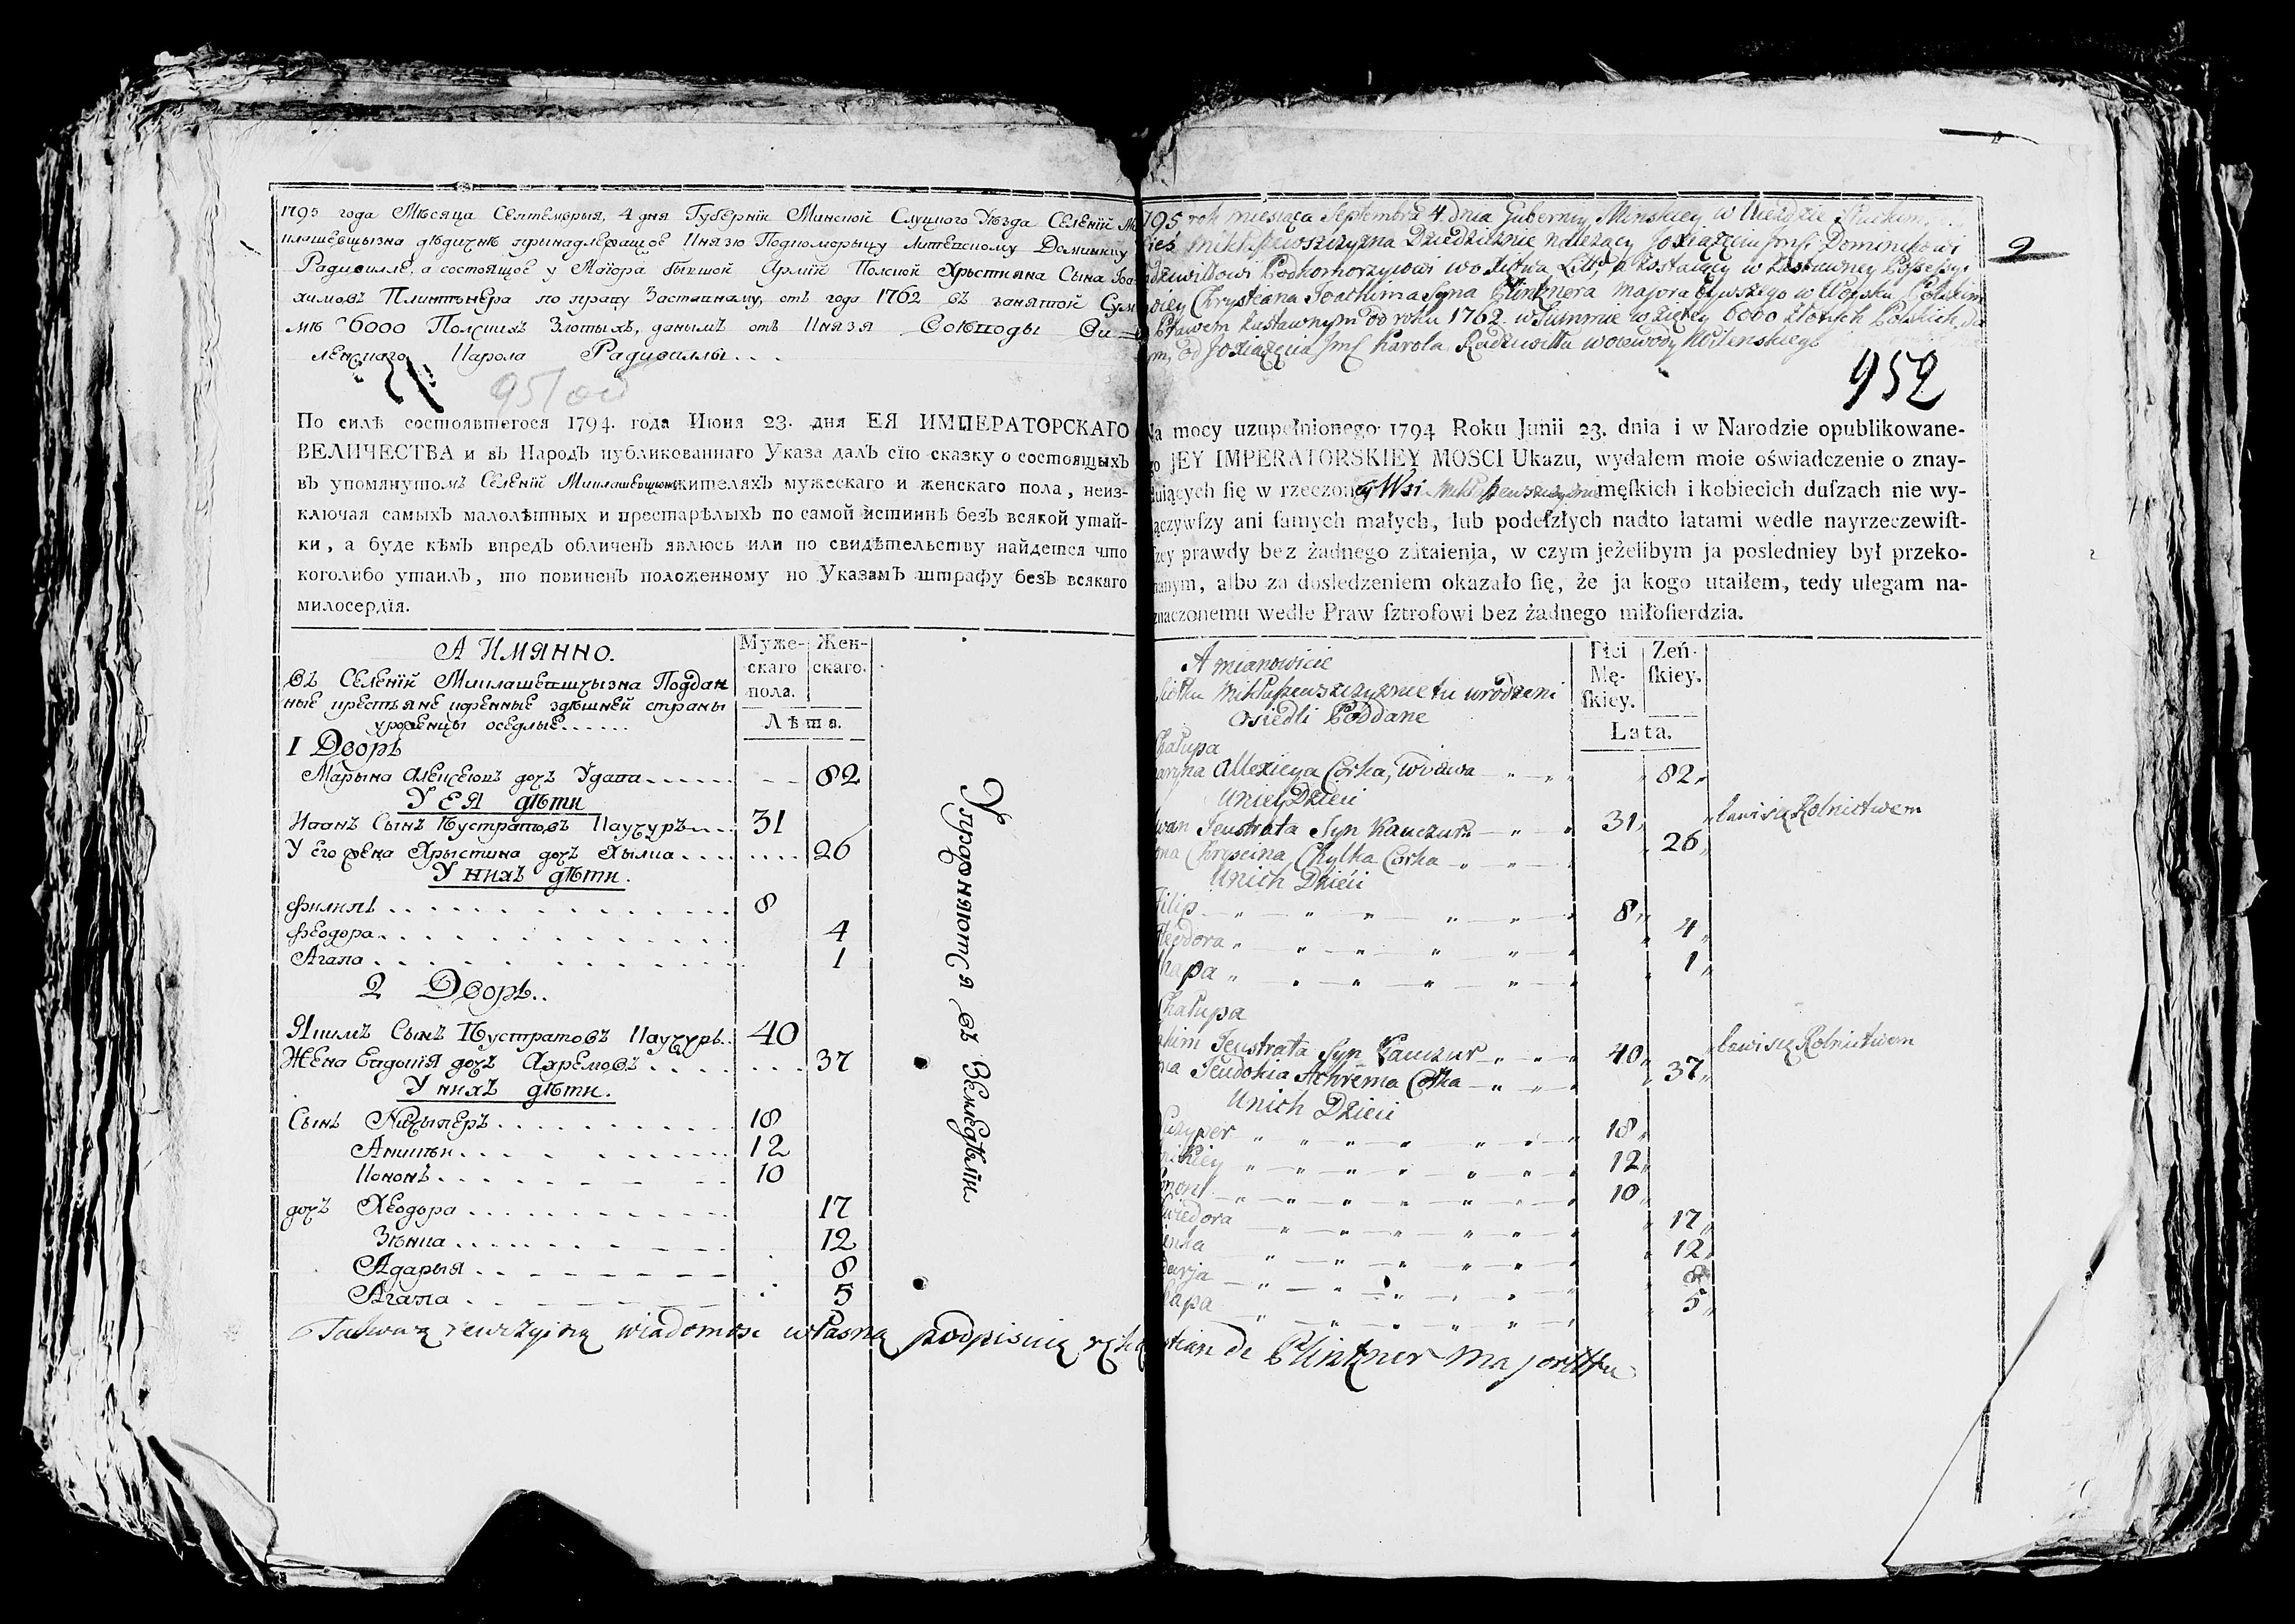 1795 года Мѣсяца Септемврыя, 4 дня Губернїи Минской Слуцкого Уѣзда Селенїй Ми
клашевщызна дѣдичнѣ принадлежащое Князю Подкоморыцу Литевскому Доминику
Радивиллѣ, а состоящое у Маїора бывшой Армїи Полской Хрыстияна Сына Іоа
химовъ Плинтънера по праву Заставному, отъ года 1762 въ занятой Сум
мѣ 6000 Полскихъ Злотыхъ, данымъ отъ Князя Воіеводы Ви
ленскаго Карола Радивиллы...
951 об
По силѣ состоявшегося 1794. года Июня 23. дня ЕЯ ИМПЕРАТОРСКАГО
ВЕЛИЧЕСТВА и въ Народъ публикованнаго Указа далъ сїю сказку о состоящыхъ
въ упомянутомъ Селенїй Миклашевщизнѣ жителяхъ мужескаго и женскаго пола, неиз-
ключая самыхъ малолѣтныхъ и престарѣлыхъ по самой истиннѣ безъ всякой утай-
ки, а буде кѣмъ впредъ обличенъ явлюсь или по свидѣтельству найдется что
коголибо утаилъ, то повиненъ положенному по Указамъ штрафу безъ всякаго
милосердїя.
А ИМЯННО.
Муже-
скаго
пола.
Жен-
скаго.
Лѣта.
Въ Селенїй Миклашевшчызна Поддан
ные крестьяне коренные здѣшней страны
уроженцы оседлые......
1 Дворъ
Марына Алексеювъ дочъ Удава 82
У ЕЯ дѣти
Иванъ Сынъ Іеустратовъ Каучуръ 31
У его жена Хрыстина дочъ Хылка 26
У нихъ дѣти.
Филипъ 8
Феодора 4
Агапа 1
2 Дворъ..
Якимъ Сынъ Іеустратовъ Каучуръ 40
Жена Евдокїя дочъ Ахремовъ 37
У нихъ дѣти.
Сынъ Ничыперъ 18
Аникѣи 12
Кононъ 10
дочъ Хеодора 17
Зѣнка 12
Адарыя 8
Агапа 5
Упражняются въ Земледѣлїи
Takową rewizyiną wiadomosc własną podpisuię ręką
795 rok miesiąca Septembra 4. dnia Gubernij Minskiey w Uiezdzie Sluckim
ieś Mikłaszewszczyzna Dziedzicznie należący JoXiążęciu Jmsci Dominikowi
adziwiłłowi Podkomorzycowi wo Xstwa Litt, a zostaiący w Zastawney Possessyi
Chrystiana Joachima Syna Plintznera Majora bywszego w Woysku Polskim
Prawem Zastawnym od roku 1762 w Summie wziętey 6000 Złotych Polskich, da
ym, od JoXiążęcia Jmsc Karola Radziwiłła Woiewody Wilenskiego
952
2
Na mocy uzupełnionego 1794 Roku Junii 23. dnia i w Narodzie opublikowane-
go JEY IMPERATORSKIEY MOSCI Ukazu, wydałem moie oświadczenie o znay-
duiących ſię w rzeczoney Wsi Mikłaszewszczyznie męſkich i kobiecich duſzach nie wy-
łączywſzy ani ſamych małych, lub podeſzłych nadto latami wedle nayrzeczewiſt-
ſzey prawdy bez żadnego zataienia, w czym jeżelibym ja posledniey był przeko-
nanym, albo za dosledzeniem okazało ſię, że ja kogo utaiłem, tedy ulegam na-
znaczonemu wedle Praw ſztrofowi bez żadnego miłoſierdzia.
A mianowicie
Płci
Mę-
ſkiey.
Zeń-
ſkiey.
Lata.
Siołku Mikłaszewszczyznie tu urodzeni
Osiedli Poddane
Chałupa
aryna Allexieya Corka, Wdowa 82
U niey Dzieci
Iwan Jeustrata Syn Kauczur 31 bawi się Rolnictwem
ona Chryscina Chylka Corka 26
U nich Dzieci
Filip 8
Theodora 4
hapa 1
Chałupa
akim Jeustrata Syn Kauczur 40 bawi się Rolnictwem
na Jeudokia Achrema Corka 37
U nich Dzieci
iczyper 18
nikiey 12
onon 10
wiedora 17
inka 12
darja 8
hapa 5
stian de Plintzner Major mp